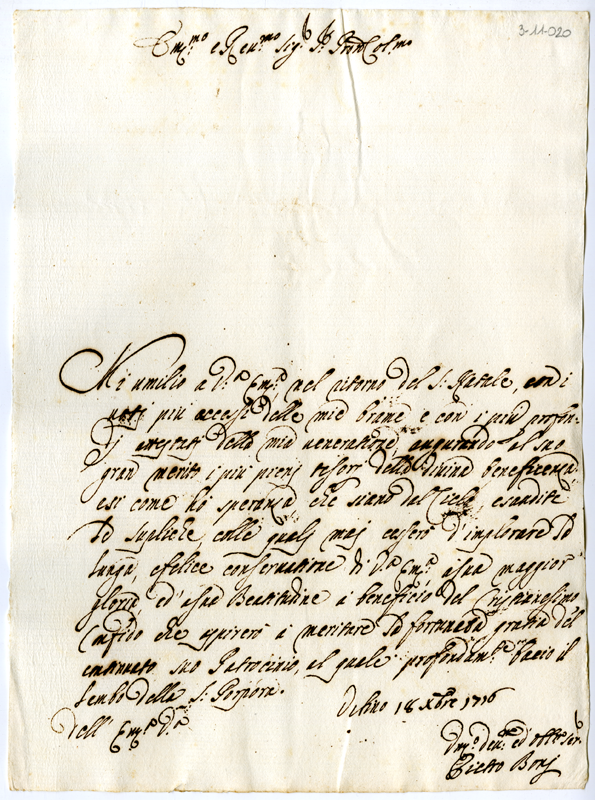 3-11-020
Em.mo e Rev.mo Sig.r P.rone Col.mo
Mi umilio a V.a Em.a nel ritorno del S. Natale, con i
voti più accesi delle mie brame e con i più profon-
di della mia venerazione augurando al suo
gran merito i più pieni tesori della divina beneficenza
e si come ho speranza che siano dal Cielo esaudite
le supliche, colle quali mai cesserò d'implorare la
lunga, e felice conservazione di V.a Em.a a sua maggior
gloria, ed a sua Beatitudine a beneficio del Cristianesimo
Confido che a meritare la fortunata grazia del
suo Patrocinio, al quale profondam.te bacio il
lembo della S. Porpora.
18 Xbre 1716
Dell' Em.a V.a
Um.o dev.mo ed obb.mo Ser.
Pietro Bonj